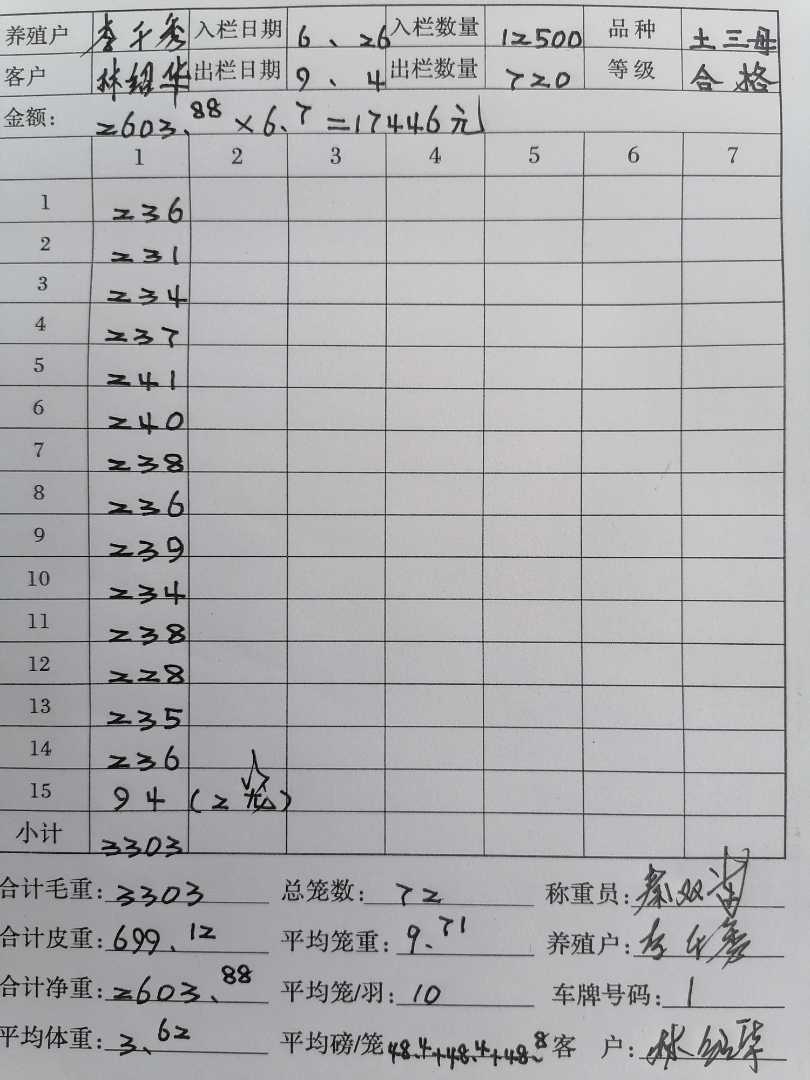 养殖户 李千秀 入栏日期 6、26 入栏数量 12500 品种 土三母
客户 林绍华 出栏日期 9、4 出栏数量 720 等级 合格
金额: 2603.88×6.7=17446元
1 2 3 4 5 6 7
1 236
2 231
3 234
4 237
5 241
6 240
7 238
8 236
9 239
10 234
11 238
12 228
13 235
14 236
15 94 (2
小计 3303
合计毛重: 3303 总笼数: 72 称重员: 秦双
合计皮重: 699.12 平均笼重: 9.71 养殖户: 李千秀
合计净重: 2603.88 平均笼/羽: 10 车牌号码: 1
平均体重: 3.62 平均磅/笼 48.4+48.4+48.8 客户: 林绍华